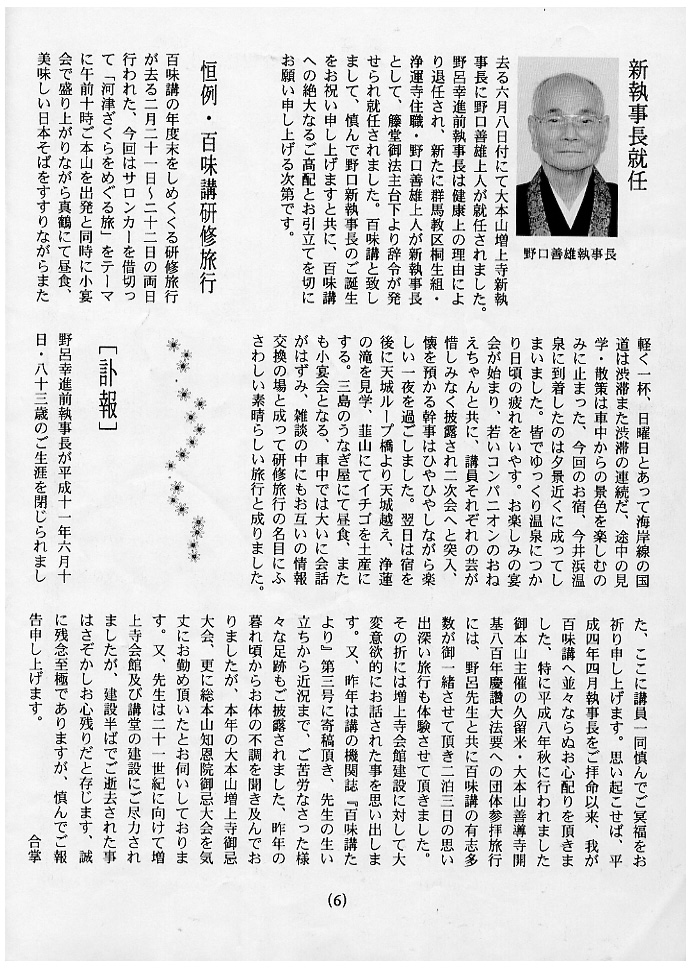 新執事長就任
野口善雄執事長
去る六月八日付にて大本山増上寺新執
事長に野口善雄上人が就任されました。
野呂幸進前執事長は健康上の理由によ
り退任され、新たに群馬教区桐生組・
浄運寺住職・野口善雄上人が新執事長
として、籐堂御法主台下より辞令が発
せられ就任されました。百味講と致し
まして、慎んで野口新執事長のご誕生
をお祝い申し上げますと共に、百味講
への絶大なるご高配とお引立てを切に
お願い申し上げる次第です。
恒例・百味講研修旅行
百味講の年度末をしめくくる研修旅行
が去る二月二十一日～二十二日の両日
行われた、今回はサロンカーを借切っ
て「河津ざくらをめぐる旅」をテーマ
に午前十時ご本山を出発と同時に小宴
会で盛り上がりながら真鶴にて昼食、
美味しい日本そばをすすりながらまた
軽く一杯、日曜日とあって海岸線の国
道は渋滞また渋滞の連続だ、途中の見
学・散策は車中からの景色を楽しむの
みに止まった、今回のお宿、今井浜温
泉に到着したのは夕景近くに成ってし
まいました。皆でゆっくり温泉につか
り日頃の疲れをいやす。お楽しみの宴
会が始まり、若いコンパニオンのおね
えちゃんと共に、講員それぞれの芸が
惜しみなく披露され二次会へと突入、
懐を預かる幹事はひやひやしながら楽
しい一夜を過ごしました。翌日は宿を
後に天城ループ橋より天城越え、浄蓮
の滝を見学、韮山にてイチゴを土産に
する。三島のうなぎ屋にて昼食、また
も小宴会となる、車中では大いに会話
がはずみ、雑談の中にもお互いの情報
交換の場と成って研修旅行の名目にふ
さわしい素晴らしい旅行と成りました。
［訃報］
野呂幸進前執事長が平成十一年六月十
日・八十三歳のご生涯を閉じられまし
た、ここに講員一同慎んでご冥福をお
祈り申し上げます。思い起こせば、平
成四年四月執事長をご拝命以来、我が
百味講へ並々ならぬお心配りを頂きま
した、特に平成八年秋に行われました
御本山主催の久留米・大本山善導寺開
基八百年慶讃大法要への団体参拝旅行
には、野呂先生と共に百味講の有志多
数が御一緒させて頂き二泊三日の思い
出深い旅行も体験させて頂きました。
その折には増上寺会館建設に対して大
変意欲的にお話された事を思い出しま
す。又、昨年は講の機関誌『百味講た
より』第三号に寄稿頂き、先生の生い
立ちから近況まで、ご苦労なさった様
々な足跡もご披露されました、昨年の
暮れ頃からお体の不調を聞き及んでお
りましたが、本年の大本山増上寺御忌
大会、更に総本山知恩院御忌大会を気
丈にお勤め頂いたとお伺いしておりま
す。又、先生は二十一世紀に向けて増
上寺会館及び講堂の建設にご尽力され
ましたが、建設半ばでご逝去された事
はさぞかしお心残りだと存じます、誠
に残念至極でありますが、慎んでご報
告申し上げます。　合掌
(6)